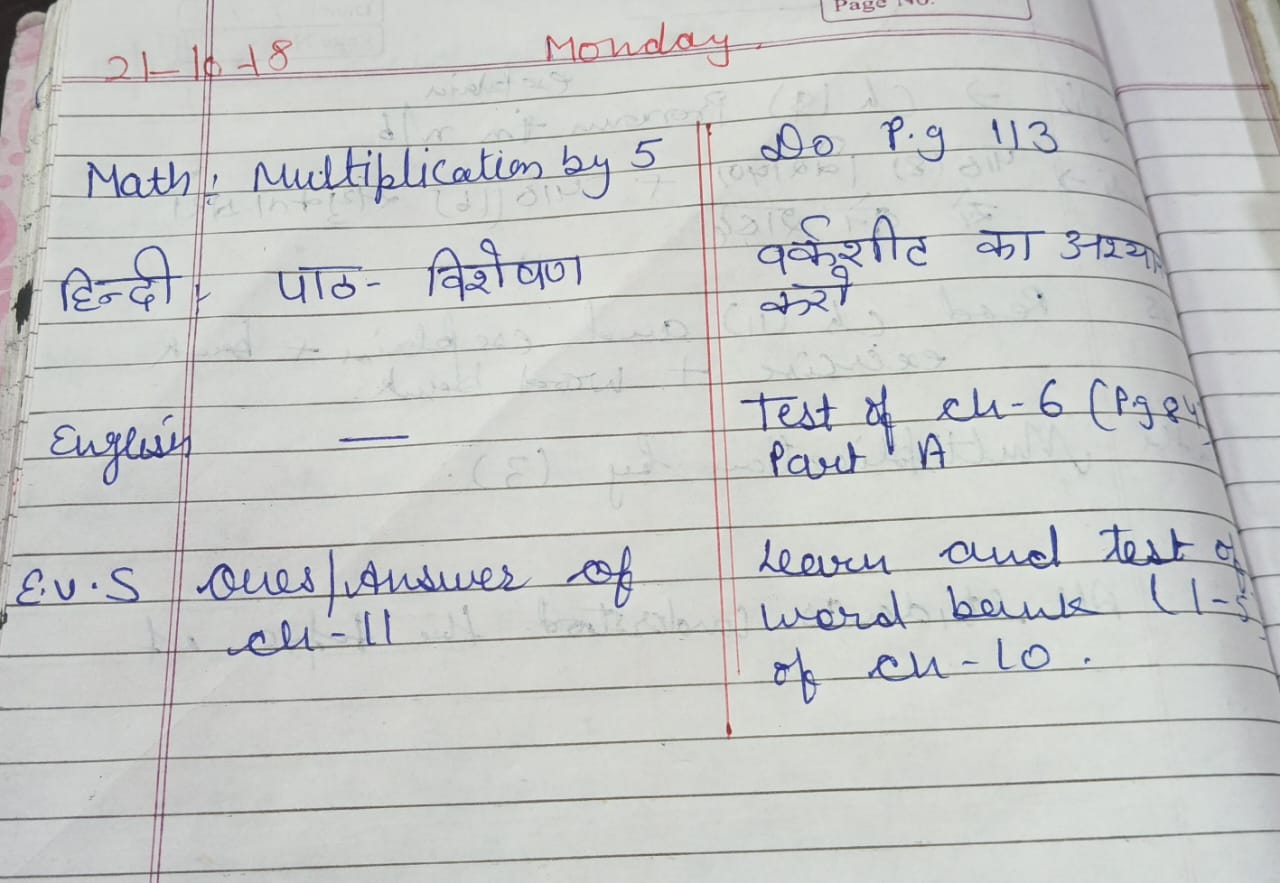 Page No.
21-10-18 Monday.
Math: Multiplication by 5 Do P.g 113
हिन्दी: पाठ- विशेषण वर्कशीट का अभ्यास
करो
English — Test of ch-6 (Pg 84)
Part A
E.V.S Ques/Answer of Learn and test of
ch-11 word bank (1-5)
of ch-10.